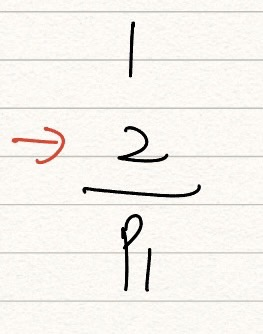 1
→ 2
P1